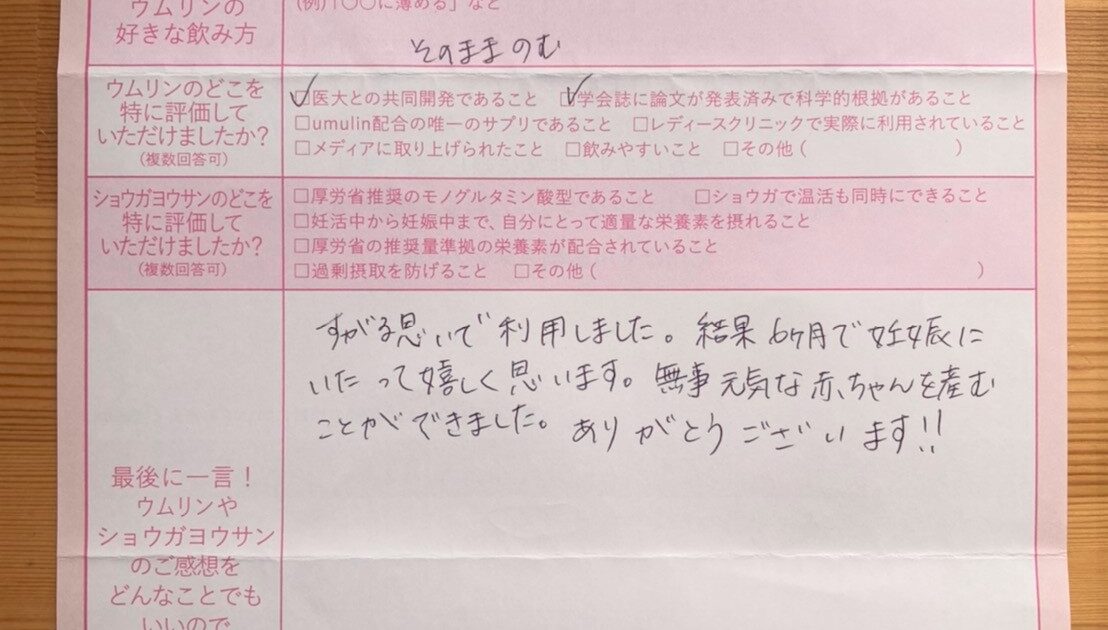 ウムリンの
好きな飲み方
(例)「〇〇に薄める」など
そのままのむ
ウムリンのどこを
特に評価して
いただけましたか?
(複数回答可)
☑医大との共同開発であること ☑学会誌に論文が発表済みで科学的根拠があること
□umulin配合の唯一のサプリであること □レディースクリニックで実際に利用されていること
□メディアに取り上げられたこと □飲みやすいこと □その他( )
ショウガヨウサンのどこを
特に評価して
いただけましたか?
(複数回答可)
□厚労省推奨のモノグルタミン酸型であること □ショウガで温活も同時にできること
□妊活中から妊娠中まで、自分にとって適量な栄養素を摂れること
□厚労省の推奨量準拠の栄養素が配合されていること
□過剰摂取を防げること □その他( )
最後に一言!
ウムリンや
ショウガヨウサン
のご感想を
どんなことでも
いいので
すがる思いで利用しました。結果6ヶ月で妊娠に
いたって嬉しく思います。無事元気な赤ちゃんを産む
ことができました。ありがとうございます!!